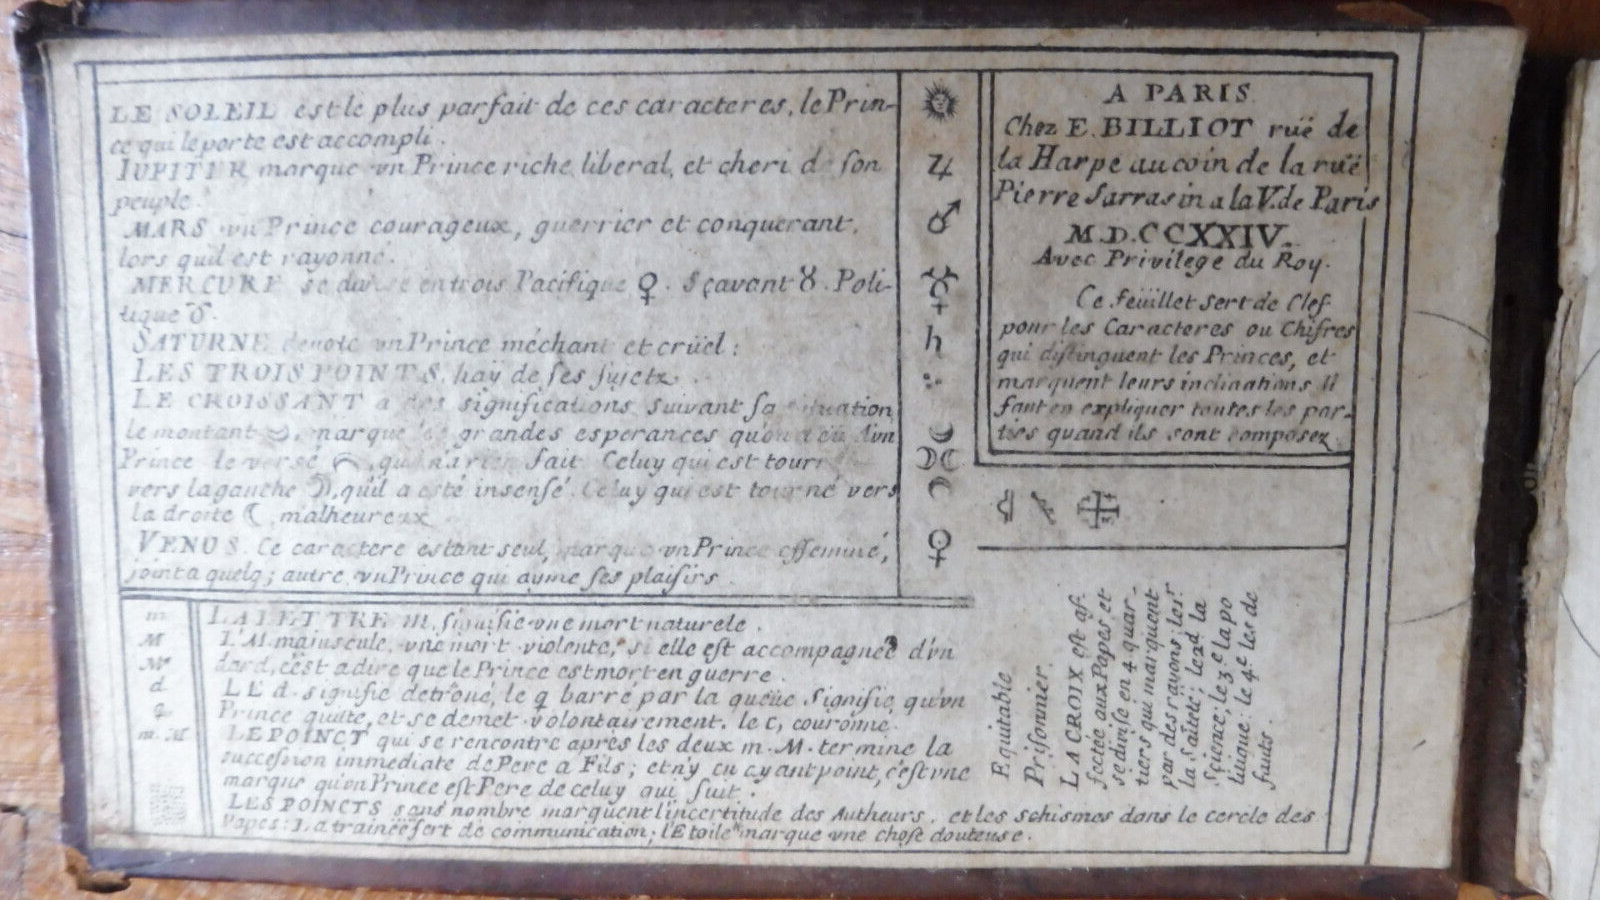 LE SOLEIL est le plus parfait de ces caracteres, le Prin-
ce qui le porte est accompli.
IUPITER marque vn Prince riche liberal, et cheri de son
peuple.
MARS vn Prince courageux, guerrier et conquerant,
lors quil est rayonné.
MERCURE se divise en trois Pacifique ♀. Sçavant ☿. Poli-
tique ♂.
SATURNE denote vn Prince méchant et crüel:
LES TROIS POINTS, hay de ses sujetz.
LE CROISSANT a des significations suivant sa situation
le montant, marque les grandes esperances qu'on a eü d'vn
Prince le versé, qu'il n'a rien fait Celuy qui est tourné
vers la gauche ☽, qu'il a esté insensé. Celuy qui est tourné vers
la droite ☾, malheureux.
VENUS. Ce caractere estant seul, marque vn Prince effeminé,
joint a quelq; autre, vn Prince qui ayme ses plaisirs.
♃
♂
♄
☽
☽☾
☾
♀
A PARIS
Chez E. BILLIOT ruë de
la Harpe au coin de la ruë
Pierre Sarrasin a la V. de Paris
M.D.CCXXIV.
Avec Privilege du Roy.
Ce feüillet sert de Clef
pour les Caracteres ou Chifres
qui distinguent les Princes, et
marquent leurs inclinations Il
faut en expliquer toutes les par-
ties quand ils sont composez
Equitable
Prisonnier.
LA CROIX est af-
fectée aux Papes et
se divise en 4 quar-
tiers que marquent
par des rayons: le 1.er
la sainteté; le 2d la
sçience; le 3e la po
litique: le 4e les de
fauts.
m
M
d
q
m. M
LA LETTRE m, signifie vne mort naturele.
L'M. majuscule, vne mort violente, si elle est accompagnée d'vn
dard, c'est a dire que le Prince est mort en guerre.
LE d. signifie detroné, le q barré par la queüe Signifie, qu'vn
Prince quitte, et se demet volontairement. le c, couronné.
LE POINCT qui se rencontre aprés les deux m. M. termine la
succession immediate de Pere a Fils; et n'y en ayant point, c'est vne
marque qu'vn Prince est Pere de celuy qui suit.
LES POINCTS sans nombre marquent l'incertitude des Autheurs, et les schismes dans le cercle des
Papes: La trainée sert de communication; l'Etoile * marque vne chose douteuse.